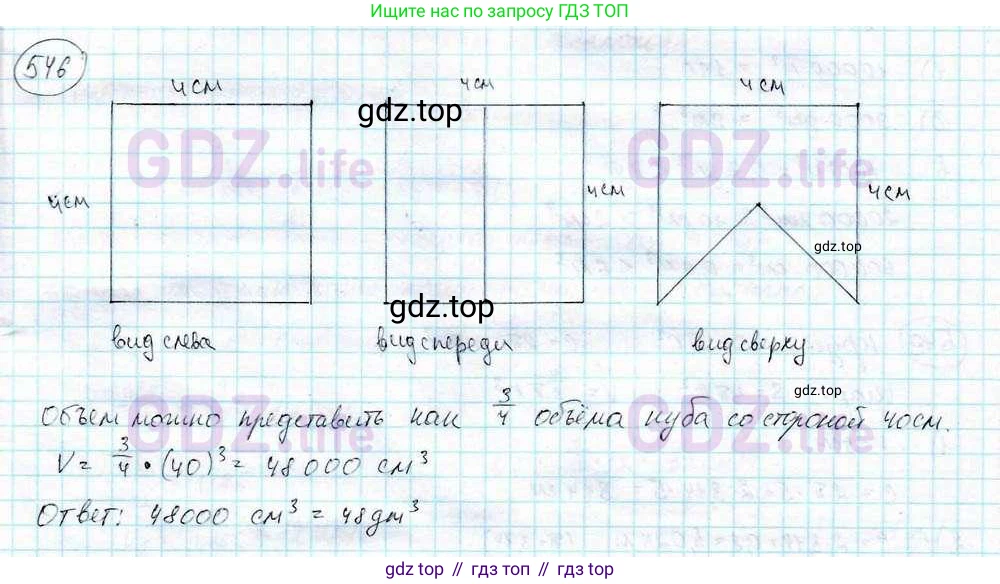 Ищите ответы по запросу ГДЗ ТОП
546
4см
4см
4см
gdz.top
GDZ.life
GDZ.life
4см
4см
4см
gdz.top
gdz.top
вид слева
вид спереди
вид сверху
gdz.top
Объем можно представить как 3/4 объёма куба со стороной 40см.
GDZ.life
GDZ.life
V = 3/4 • (40)³ = 48000 см³
Ответ: 48000 см³ = 48дм³
gdz.top // гдз топ // гдз.top